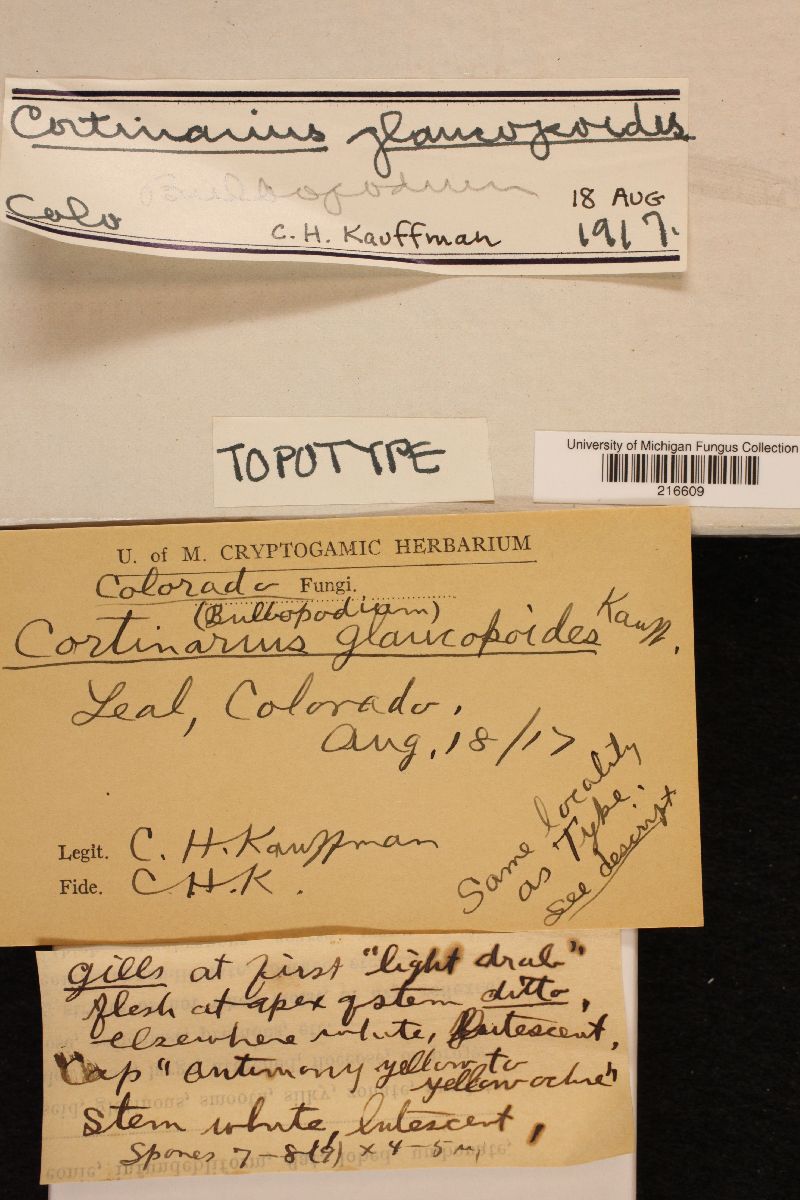 Cortinarius glaucopoides
Bulbopodium
Colo
C. H. Kauffman
18 AUG
1917.
TOPOTYPE
University of Michigan Fungus Collection
216609
U. of M. CRYPTOGAMIC HERBARIUM
Colorado Fungi.
(Bulbopodium)
Cortinarius glaucopoides Kauff.
Leal, Colorado.
Aug. 18/17
Same locality
as Type.
see descript
Legit. C. H. Kauffman
Fide. C. H. K.
gills at first "light drab"
flesh at apex of stem ditto,
elsewhere white, lutescent.
Cap "antimony yellow to
yellow ochre"
Stem white, lutescent,
Spores 7-8(9) x 4-5 µ,